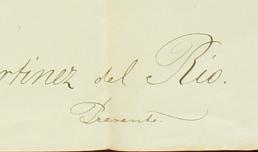 rtinez del Rio.
Presente.